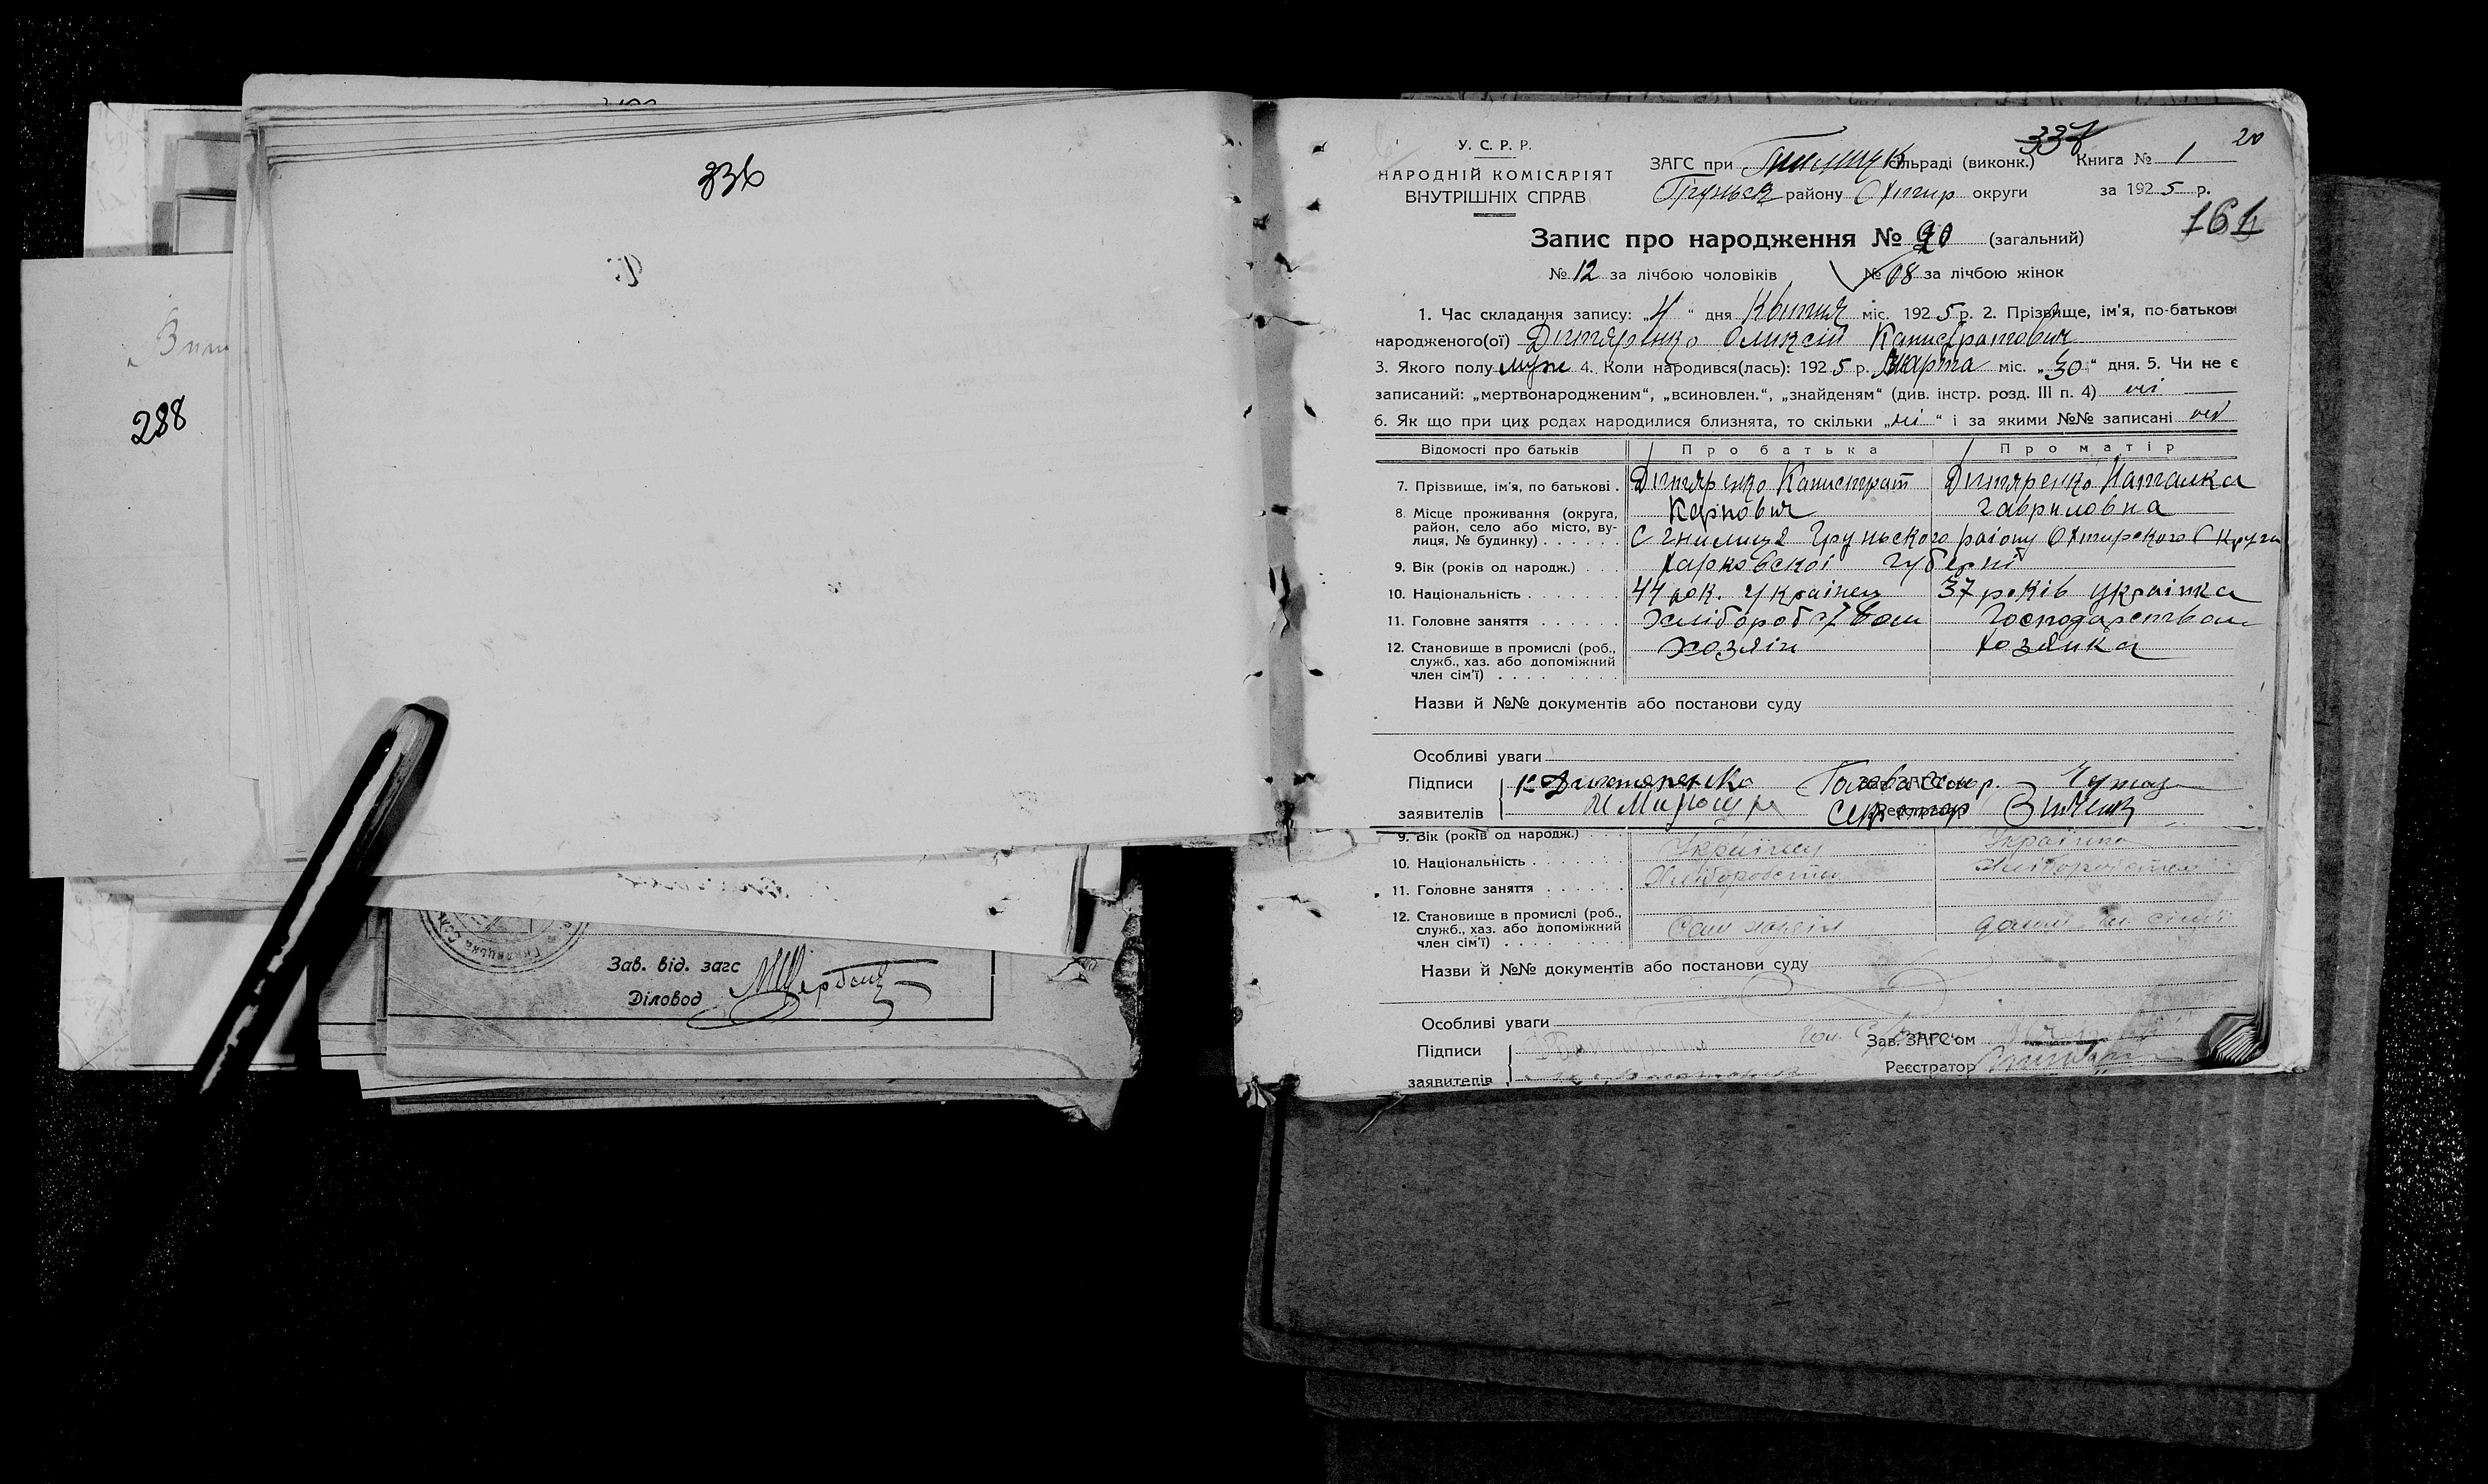 336
288
Зав. від. загс
Діловод
У. С. Р. Р.
НАРОДНІЙ КОМІСАРІЯТ
ВНУТРІШНІХ СПРАВ
337
20
ЗАГС при сільраді (виконк.) Книга № 1
Груньск району Охтир округи за 1925 р.
161
Запис про народження № 20 (загальний)
№ 12 за лічбою чоловіків № 08 за лічбою жінок
1. Час складання запису: „4“ дня Квітня міс. 1925 р. 2. Прізвище, ім'я, по-батькові
народженого(ої) Дігтяренко Оликсій Капистратович
3. Якого полу муж 4. Коли народився(лась): 1925 р. Марта міс. „30“ дня. 5. Чи не є
записаний: „мертвонародженим“, „всиновлен.“, „знайденям“ (див. інстр. розд. III п. 4) ні
6. Як що при цих родах народилися близнята, то скільки „ні“ і за якими №№ записані ні
Відомості про батьків Про батька Про матір
7. Прізвище, ім'я, по батькові . Дігтяренко Капистрат Дігтяренко Наталка
Карпович Гавриловна
8. Місце проживання (округа,
район, село або місто, ву-
лиця, № будинку) . . . . . . С Гнилиця Груньского району Охтирского Округи
9. Вік (років од народж.) . . . Харковскої губерні
10. Національність . . . . . . . 44 рок. Українец 37 років Українка
11. Головне заняття . . . . . . Хліборобством Господарством
12. Становище в промислі (роб.,
служб., хаз. або допоміжний
член сім'ї) . . . . . . . . . Хозяїн Хозяйка
Назви й №№ документів або постанови суду
Особливі уваги
Підписи К Дигтяренко Голова Сільр.
заявителів Секретар
9. Вік (років од народж.) . . . .
10. Національність . . . . . . . Українец Українка
11. Головне заняття . . . . . . Хліборобство
12. Становище в промислі (роб.,
служб., хаз. або допоміжний
член сім'ї) . . . . . . . . . Сам хозяїн
Назви й №№ документів або постанови суду
Особливі уваги
Підписи Зав. ЗАГС'ом
заявителів Реєстратор